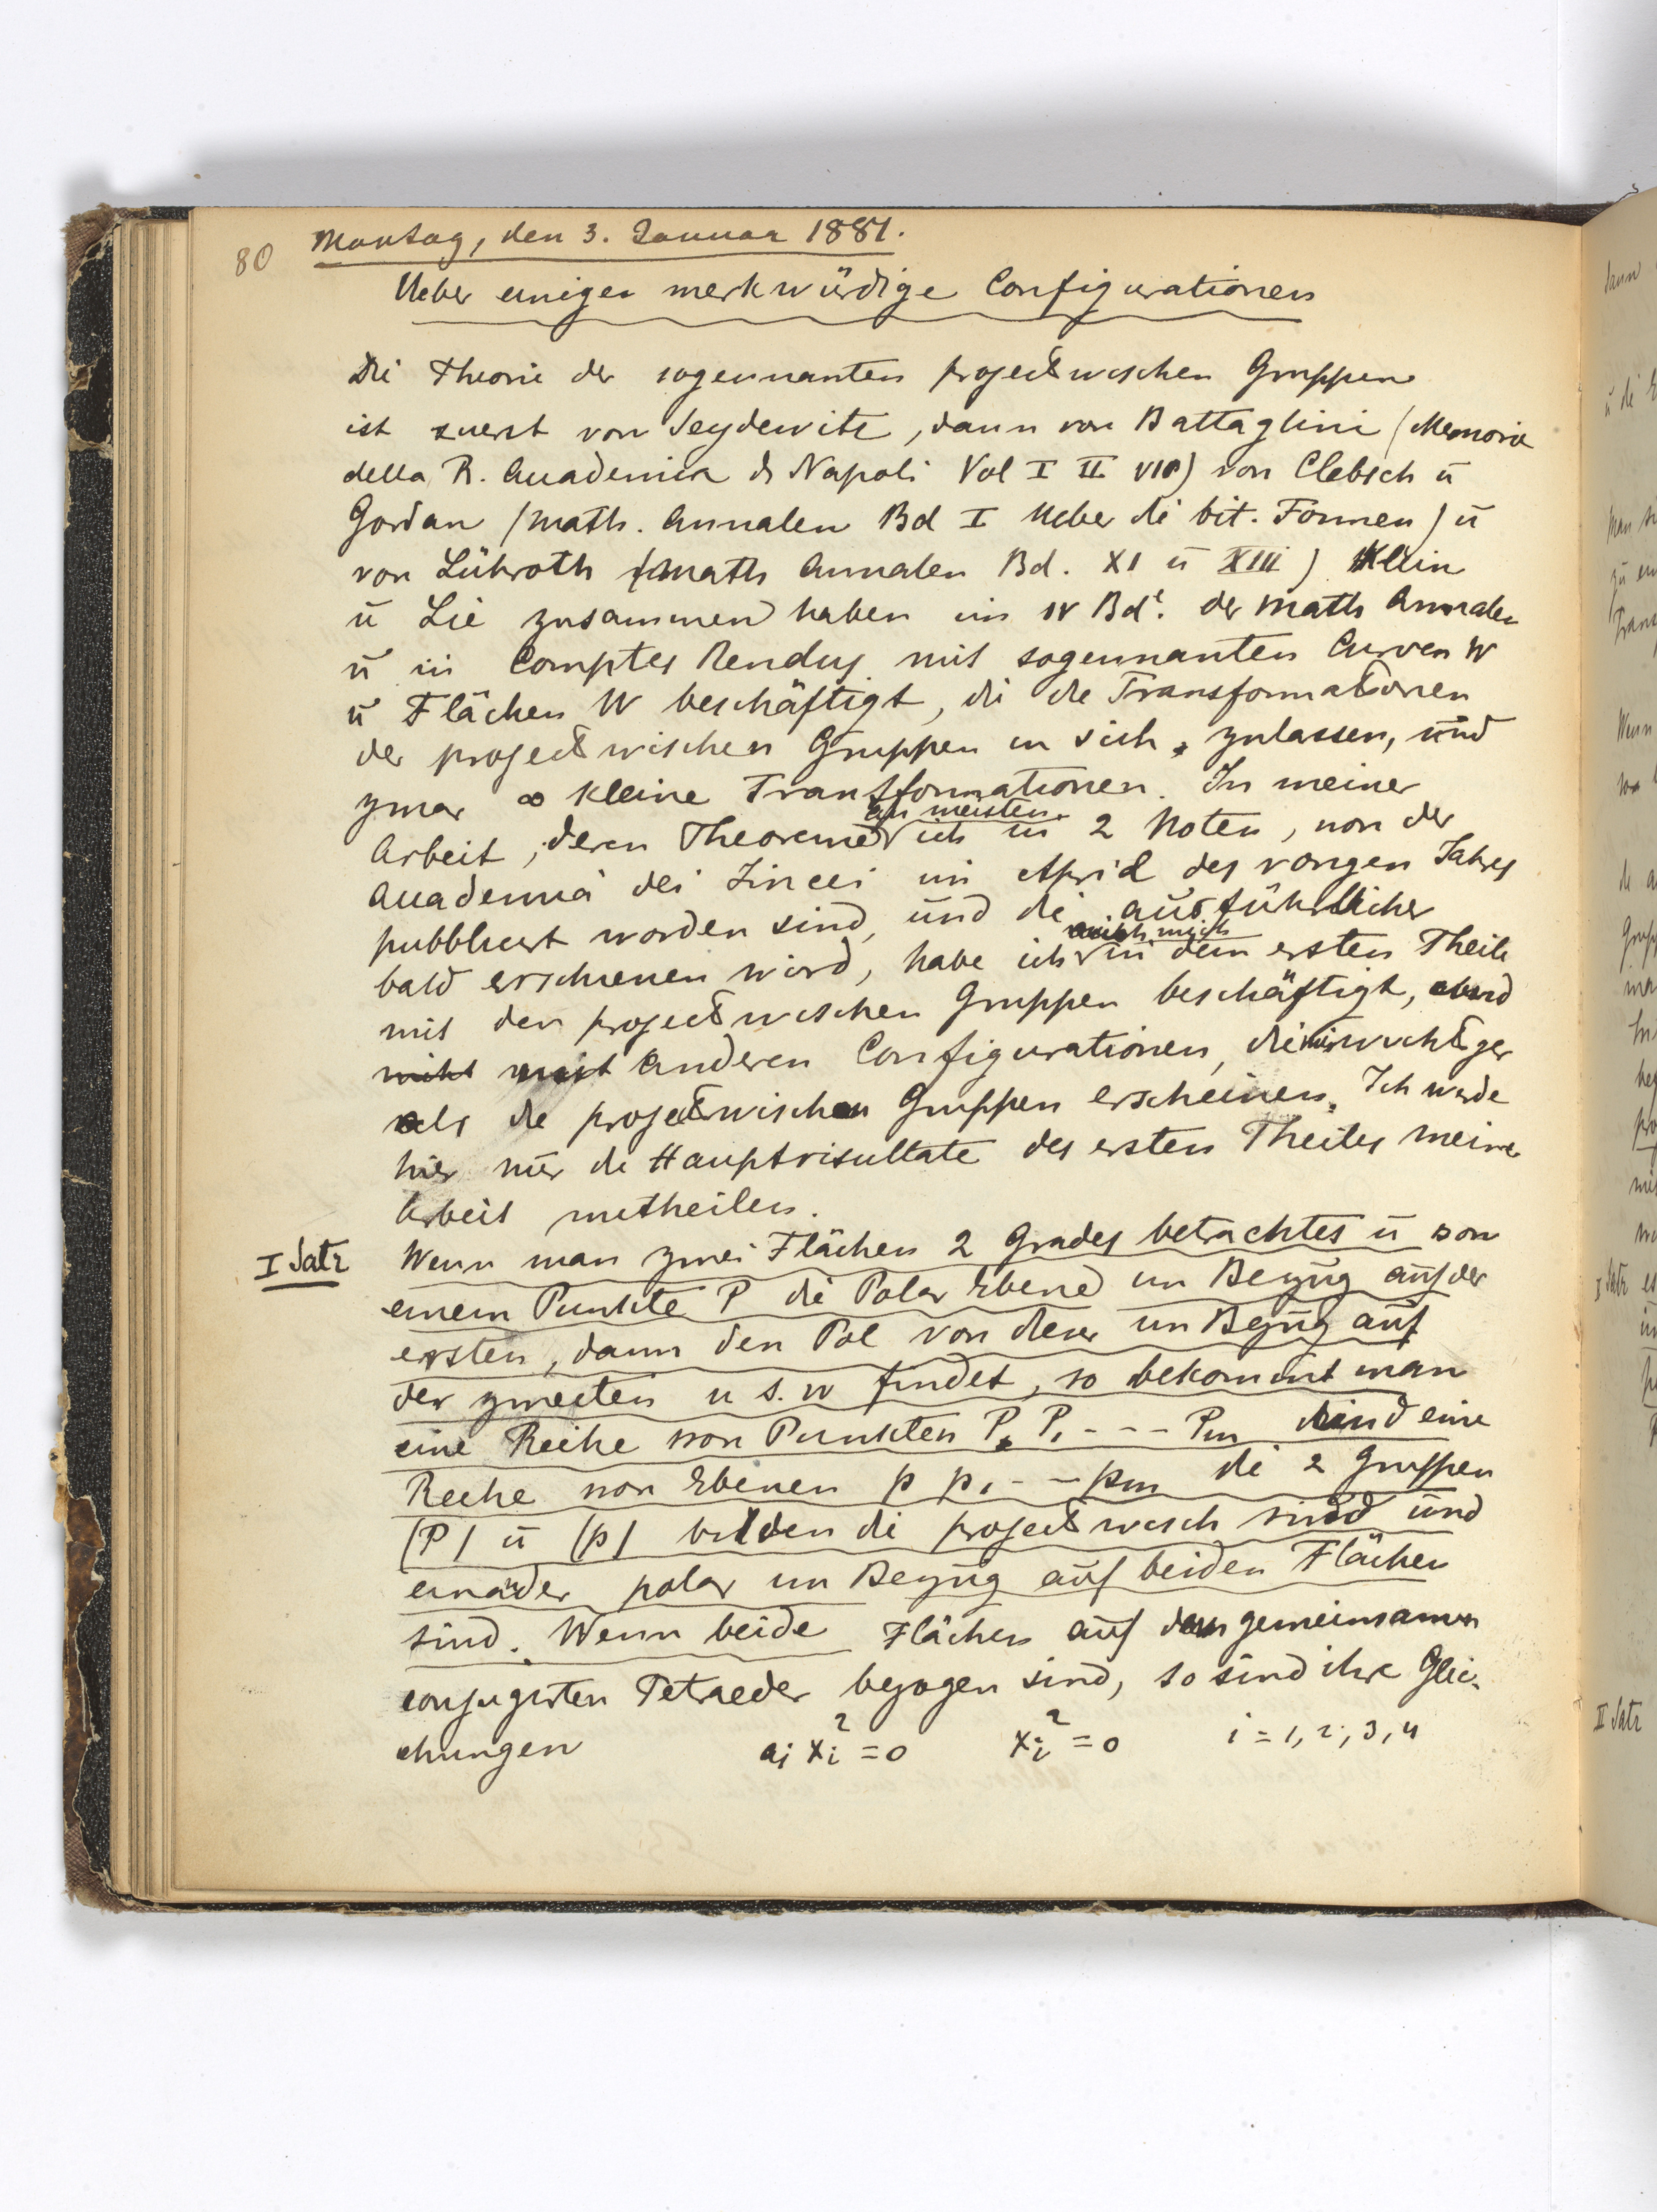 80
Montag, den 3. Januar 1881.
Ueber einigen merkwürdige Configurationen
Die Theorie der sogennanten projectivischen Gruppen
ist zuerst von Seydewitz, dann von Battaglini (Memorie
della R. Accademia di Napoli Vol I II VIII) von Clebsch ū
Gordan (Math. Annalen Bd I Ueber die bit. Formen) ū
von Lühroth (Math Annalen Bd. XI ū XIII) Klein
ū Lie zusammen haben im IV Bde. der Math Annalen
ū in Comptes Rendus mit sogennanten Curven W
ū Flächen W beschäftigt, die die Transformationen
der projectivischen Gruppen in sich zulassen, und
zwar ∞ kleine Transformationen. In meiner
am meisten
Arbeit, deren Theoreme ich in 2 Noten, von der
Accademia dei Lincei im April des vorigen Jahres
pubblicirt worden sind, und die ausführlicher
mich
bald erschienen wird, habe ich in dem ersten Theile
mit den projectivischen Gruppen beschäftigt, und
nicht mit anderen Configurationen, die mir wichtiger
als die projectivischen Gruppen erscheinen. Ich werde
hier nur die Hauptrisultate des ersten Theiles meine
Arbeit mitheilen.
I Satz
Wenn man zwei Flächen 2 Grades betrachtes ū von
einem Punkte P die Polar Ebene im Bezug auf der
ersten, dann den Pol von dieser im Bezug auf
der zweiten u s. w findet, so bekommt man
eine Reihe von Punkten P, P1 - - - Pm und eine
Reihe von Ebenen p p1 - - pm die 2 Gruppen
(P) ū (p) bilden die projectivisch sind und
einander polar im Bezug auf beiden Flächen
sind. Wenn beide Flächen auf dem gemeinsamen
conjugirten Tetraeder bezogen sind, so sind ihre Glei-
chungen ai xi² = 0 xi² = 0 i = 1, 2, 3, 4